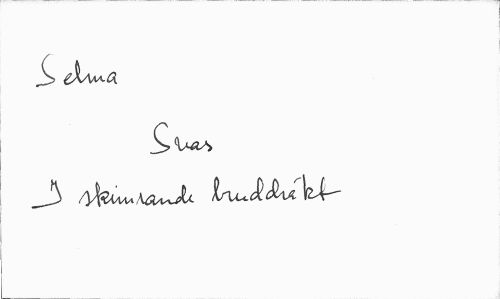 Selma
Svas
I skimrande bruddräkt